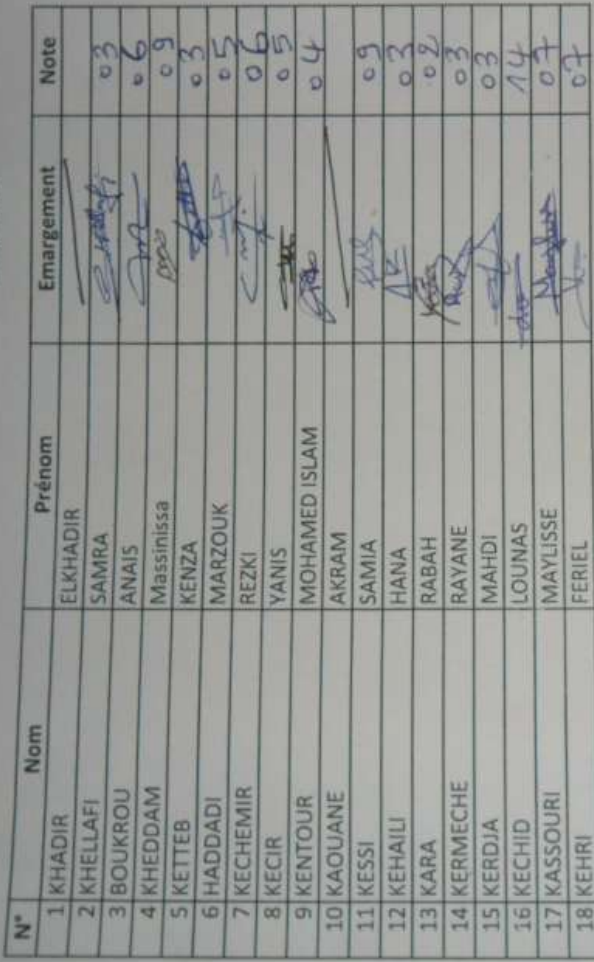 N° Nom Prénom Emargement Note
1 KHADIR ELKHADIR
2 KHELLAFI SAMRA 03
3 BOUKROU ANAIS 06
4 KHEDDAM Massinissa 09
5 KETTEB KENZA 03
6 HADDADI MARZOUK 05
7 KECHEMIR REZKI 06
8 KECIR YANIS 05
9 KENTOUR MOHAMED ISLAM 04
10 KAOUANE AKRAM
11 KESSI SAMIA 09
12 KEHAILI HANA 03
13 KARA RABAH 02
14 KERMECHE RAYANE 03
15 KERDJA MAHDI 03
16 KECHID LOUNAS 14
17 KASSOURI MAYLISSE 07
18 KEHRI FERIEL 07